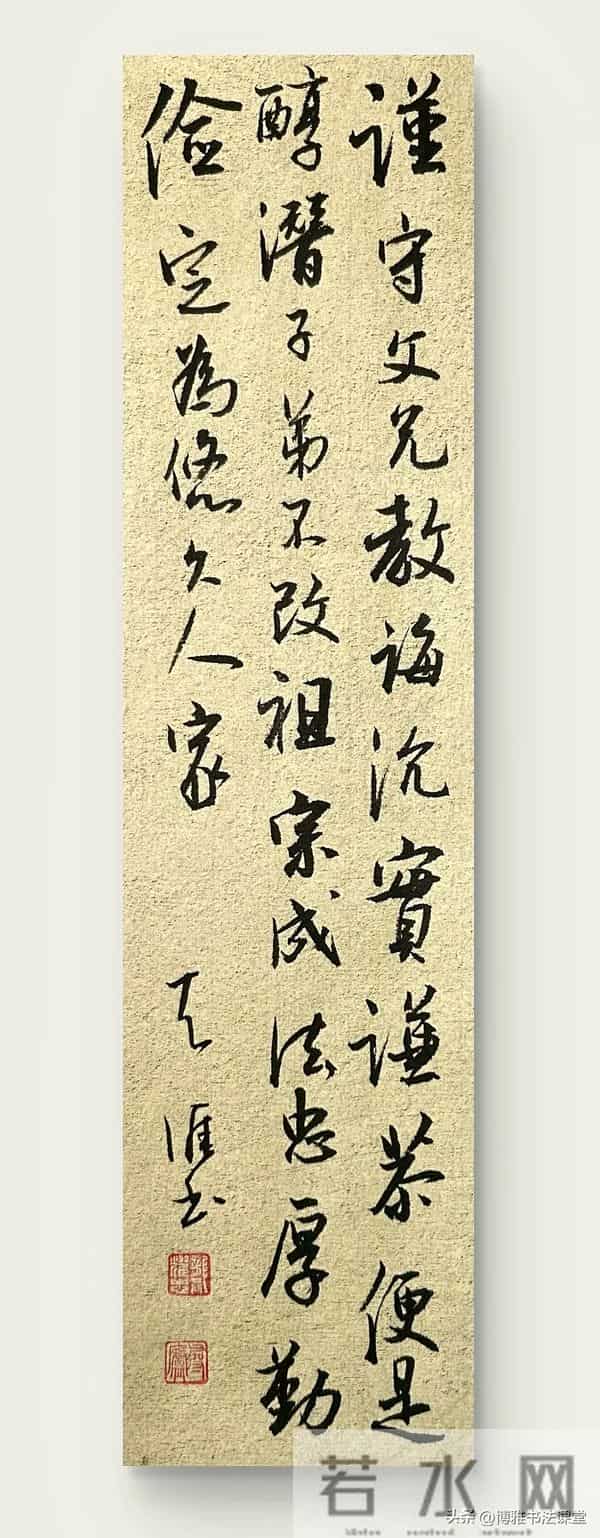 謹守父兄教誨沉實謙恭便是
醇潛子弟不改祖宗成法忠厚勤
儉定為悠久人家
天涯书
若水网
头条 @博雅书法课堂